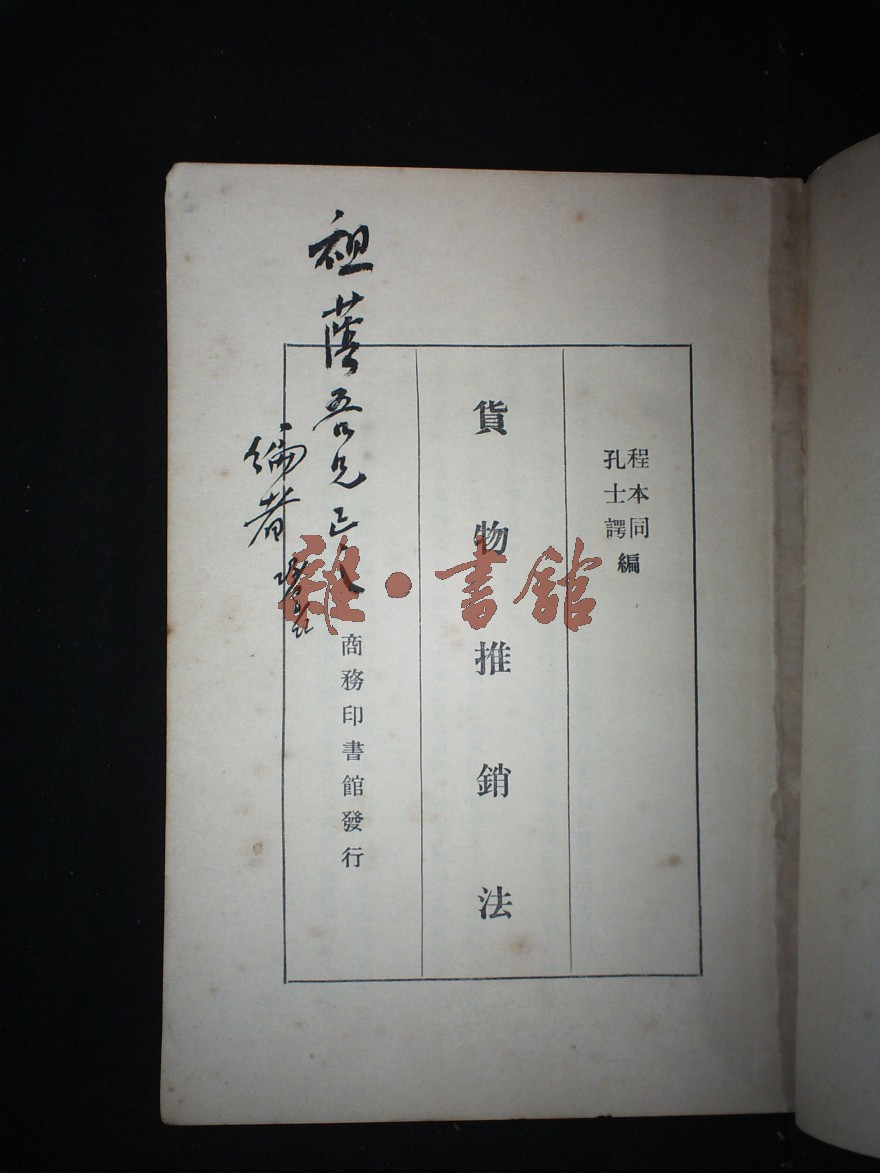 程本同
孔士諤
編
貨物推銷法
商務印書館發行
祖蔭吾兄正之
編者贈
雜·書館